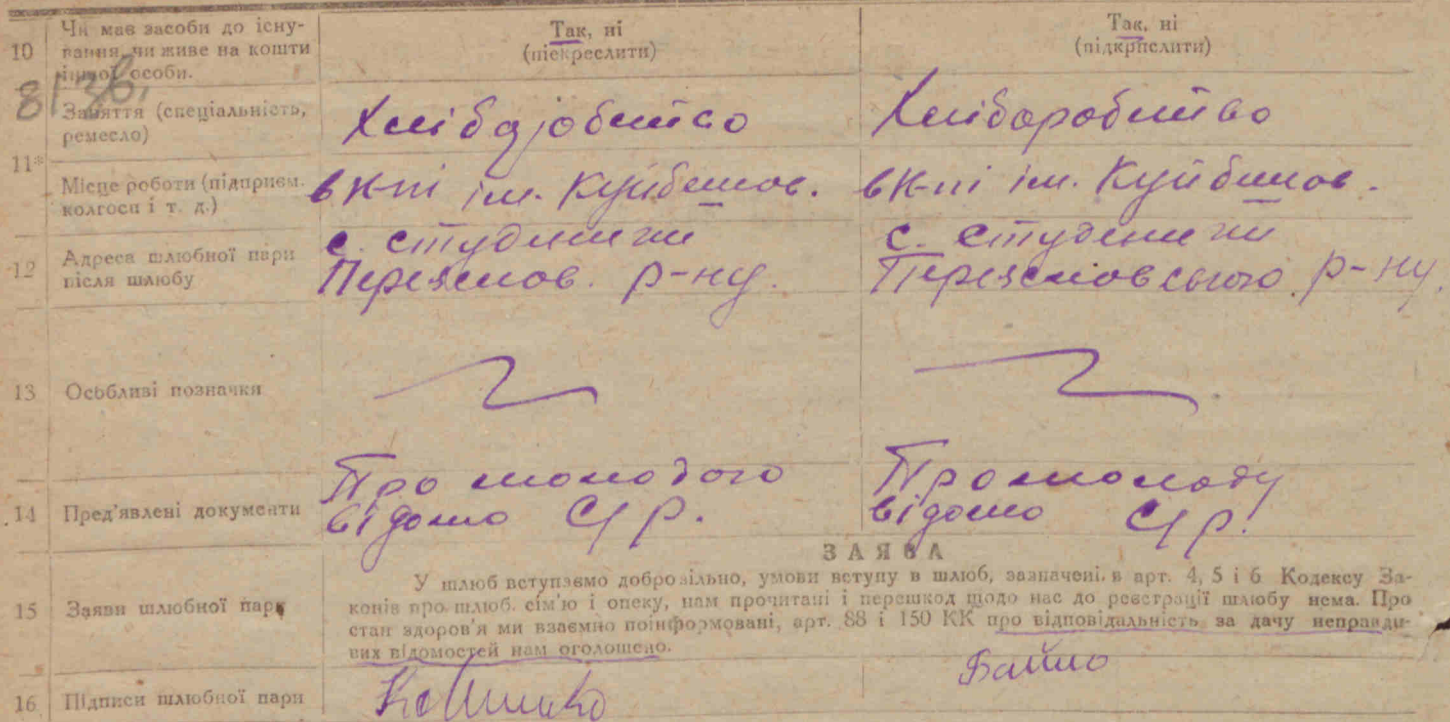 10 Чи має засоби до існування, чи живе на кошти іншої особи.
Так, ні (піекреслити)
Так, ні (підкрпслити)
81 зв.
11* Заняття (спеціальність, ремесло)
Хлібаробитво
Хлібаробитво
Місце роботи (підприєм. колгосп і т. д.)
в к-пі ім. Куйбишов.
в к-пі ім. Куйбишов.
12 Адреса шлюбної пари після шлюбу
с. Студеники
Переяслов. р-ну.
с. Студеники
Переясловського р-ну.
13 Особливі позначки
14 Пред'явлені документи
Про молодого
відомо С/р.
Про молоду
відомо С/р.
ЗАЯВА
15 Заяви шлюбної пари
У шлюб вступаємо добровільно, умови вступу в шлюб, зазначені в арт. 4, 5 і 6 Кодексу За-
конів про шлюб. сім'ю і опеку, нам прочитані і перешкод щодо нас до реєстрації шлюбу нема. Про
стан здоров'я ми взаємно поінформовані, арт. 88 і 150 КК про відповідальність за дачу неправди-
вих відомостей нам оголошено.
16 Підписи шлюбної пари